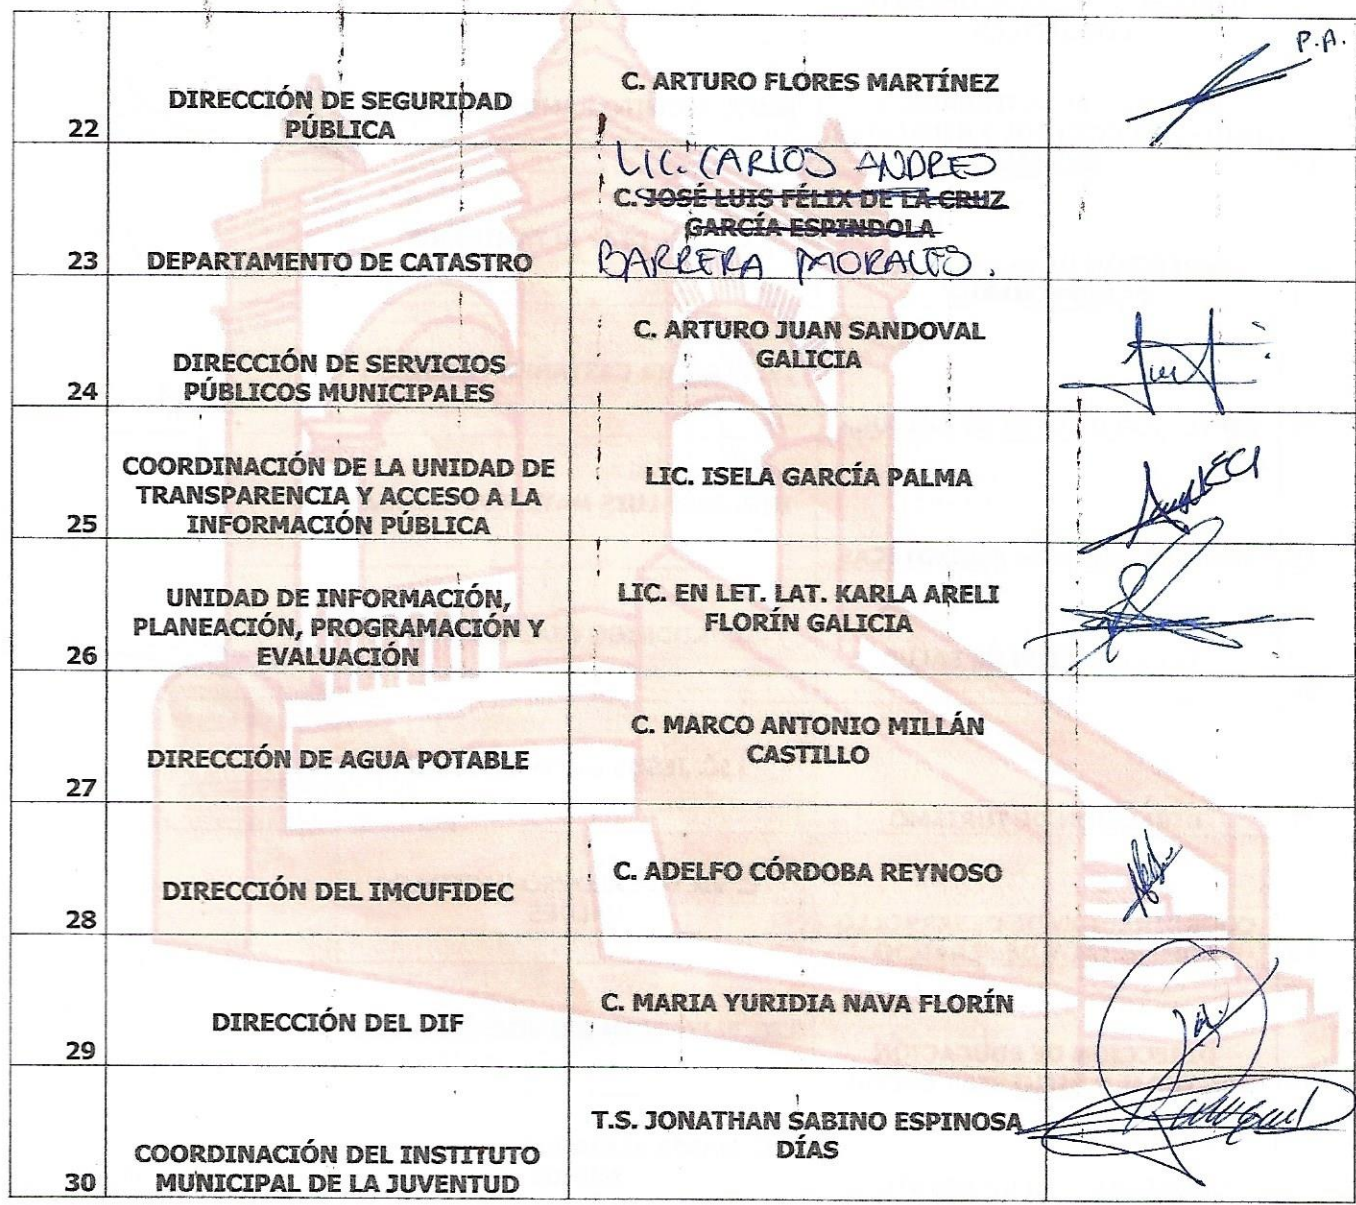 22
DIRECCIÓN DE SEGURIDAD
PÚBLICA
C. ARTURO FLORES MARTÍNEZ
P.A.
23
DEPARTAMENTO DE CATASTRO
LIC. CARLOS ANDRES
C. JOSÉ LUIS FÉLIX DE LA CRUZ
GARCÍA ESPINDOLA
BARRERA MORALES.
24
DIRECCIÓN DE SERVICIOS
PÚBLICOS MUNICIPALES
C. ARTURO JUAN SANDOVAL
GALICIA
25
COORDINACIÓN DE LA UNIDAD DE
TRANSPARENCIA Y ACCESO A LA
INFORMACIÓN PÚBLICA
LIC. ISELA GARCÍA PALMA
26
UNIDAD DE INFORMACIÓN,
PLANEACIÓN, PROGRAMACIÓN Y
EVALUACIÓN
LIC. EN LET. LAT. KARLA ARELI
FLORÍN GALICIA
27
DIRECCIÓN DE AGUA POTABLE
C. MARCO ANTONIO MILLÁN
CASTILLO
28
DIRECCIÓN DEL IMCUFIDEC
C. ADELFO CÓRDOBA REYNOSO
29
DIRECCIÓN DEL DIF
C. MARIA YURIDIA NAVA FLORÍN
30
COORDINACIÓN DEL INSTITUTO
MUNICIPAL DE LA JUVENTUD
T.S. JONATHAN SABINO ESPINOSA
DÍAS